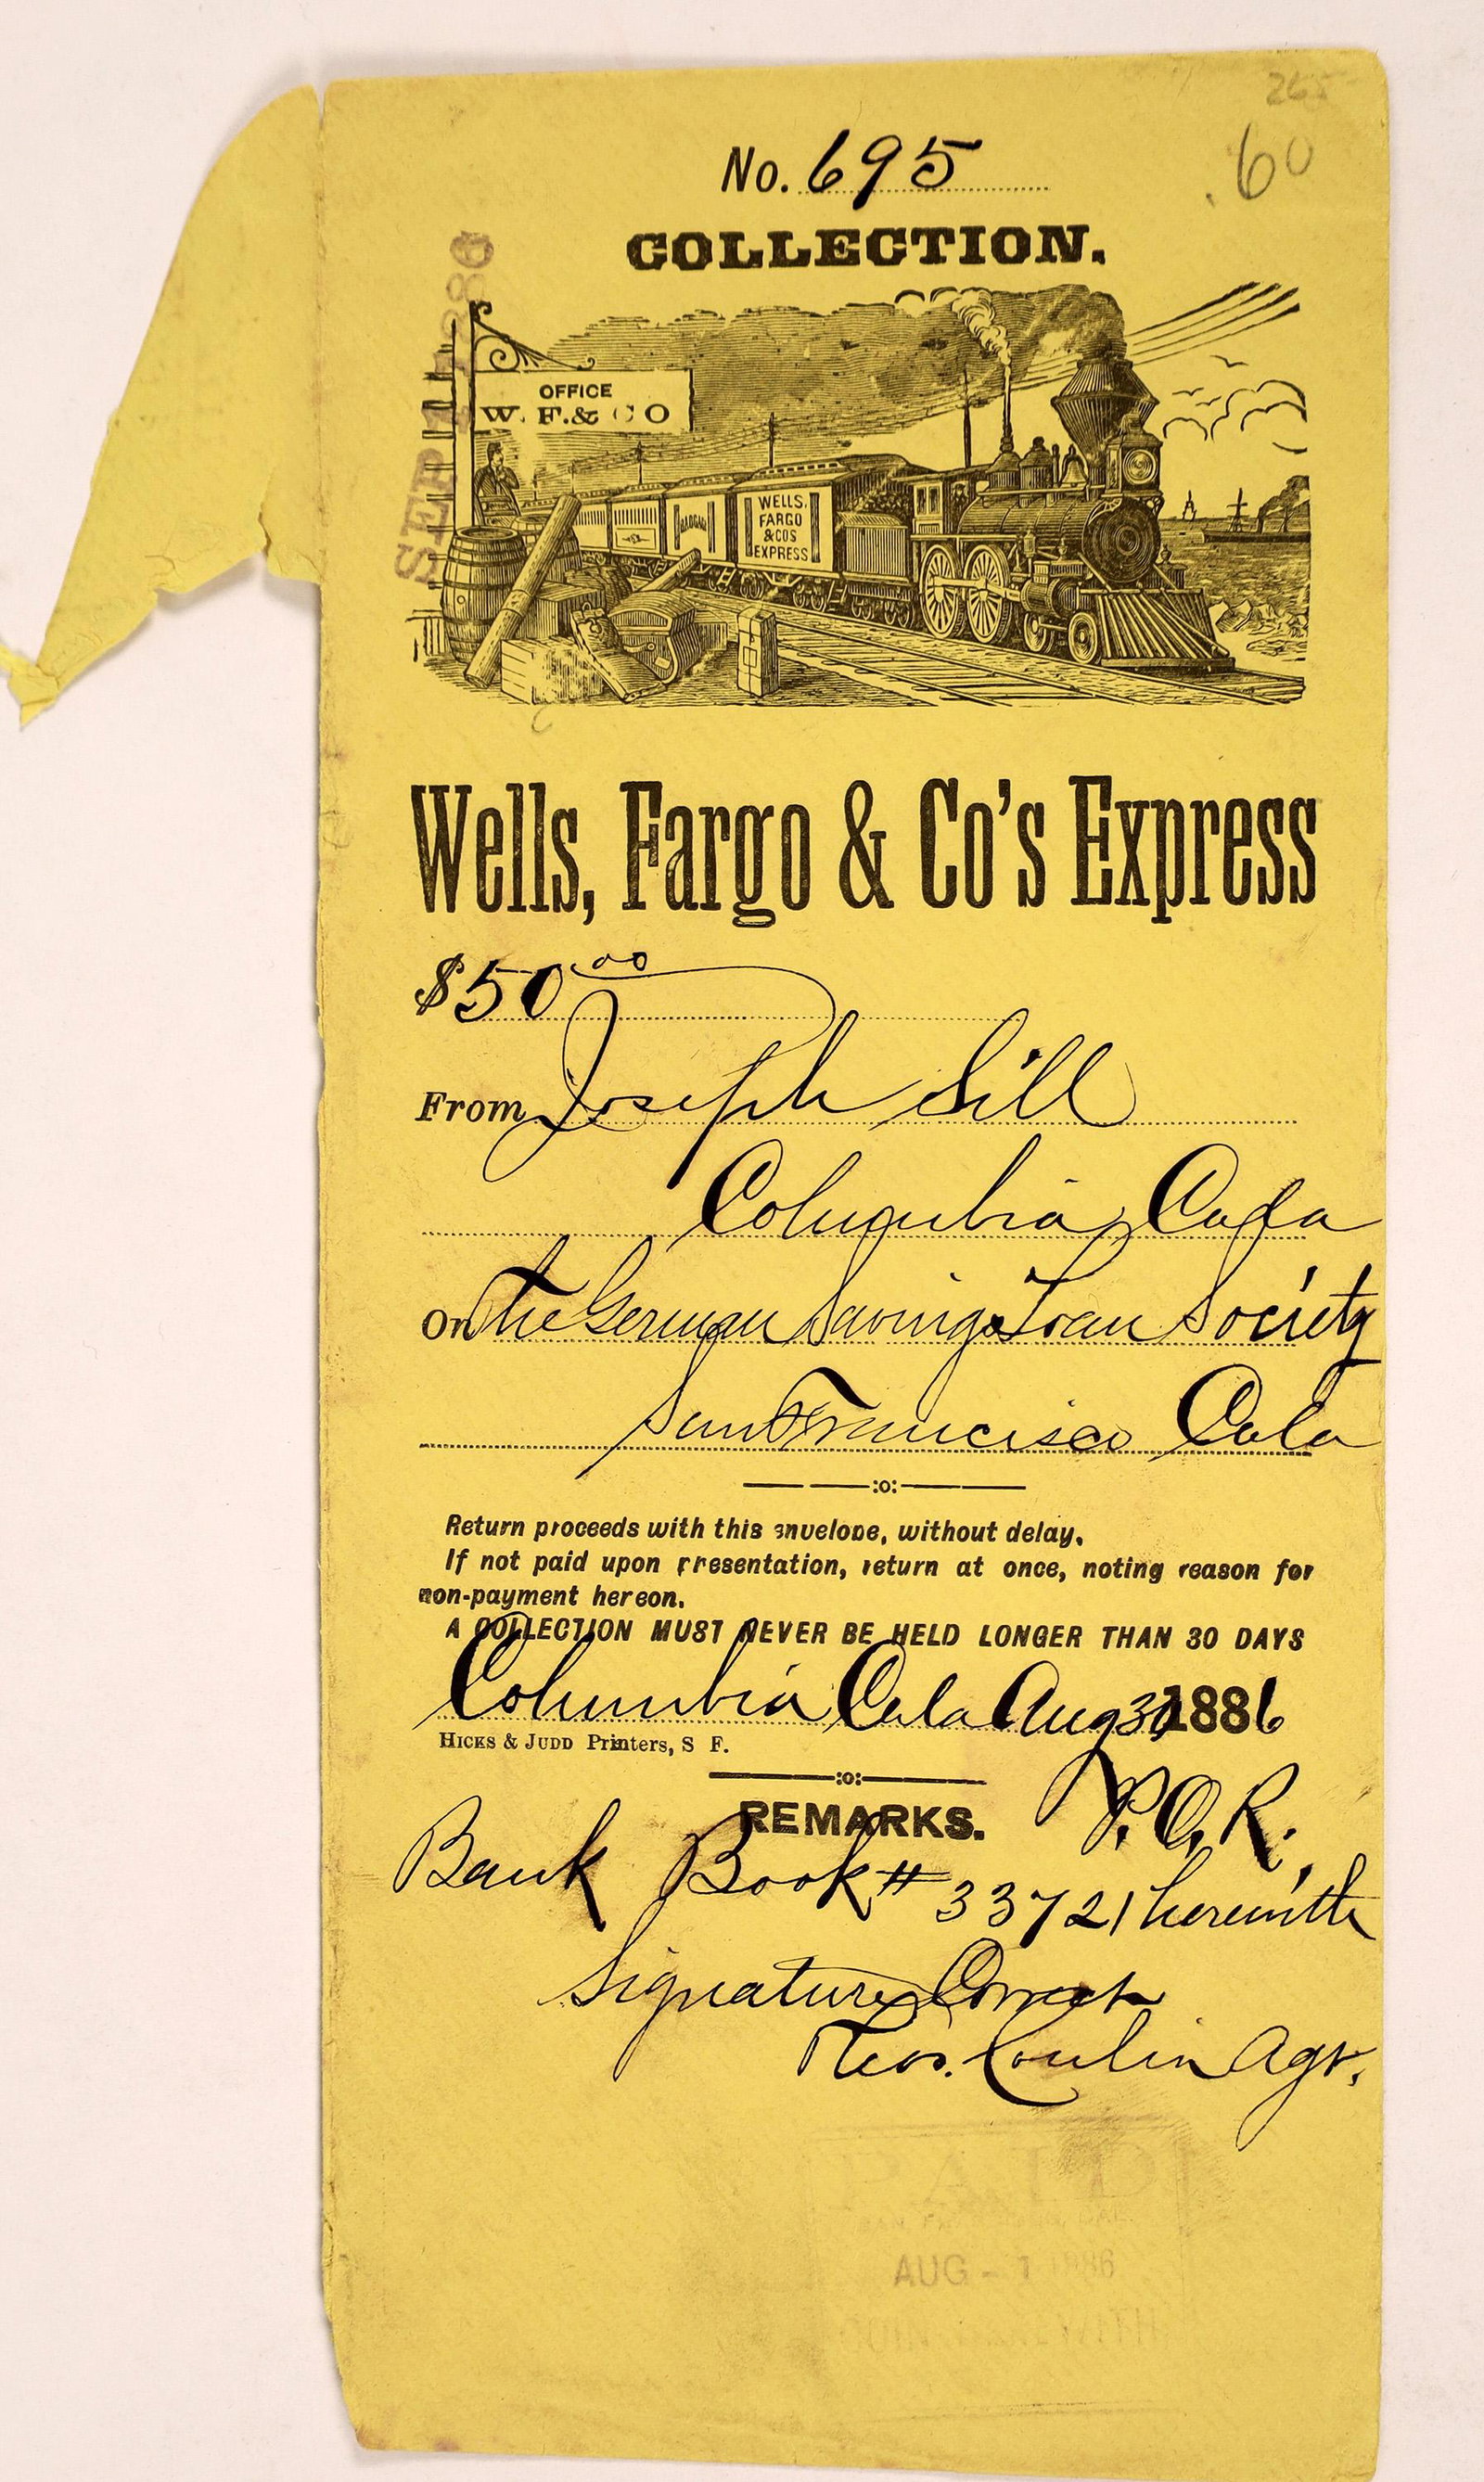 265
.60
No. 695
COLLECTION.
OFFICE
W. F. & CO
WELLS,
FARGO
&COS
EXPRESS
SEP 1886
Wells, Fargo & Co's Express
$50.00
From Joseph Sill
Columbia, Cala
On The German Savings & Loan Society
San Francisco Cala
:o:
Return proceeds with this envelope, without delay.
If not paid upon presentation, return at once, noting reason for
non-payment hereon.
A COLLECTION MUST NEVER BE HELD LONGER THAN 30 DAYS
Columbia Cala Aug 30 1886
HICKS & JUDD Printers, S F.
:o:
REMARKS. P.O.R.
Bank Book # 33721 herewith
Signature Correct
Thos. Conlin Agt.
AUG - 1 1886